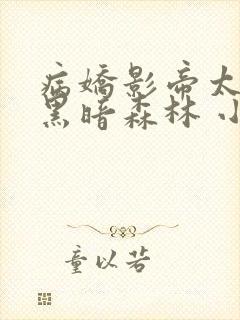 病嬌影帝太
黑暗森林 小
童以若